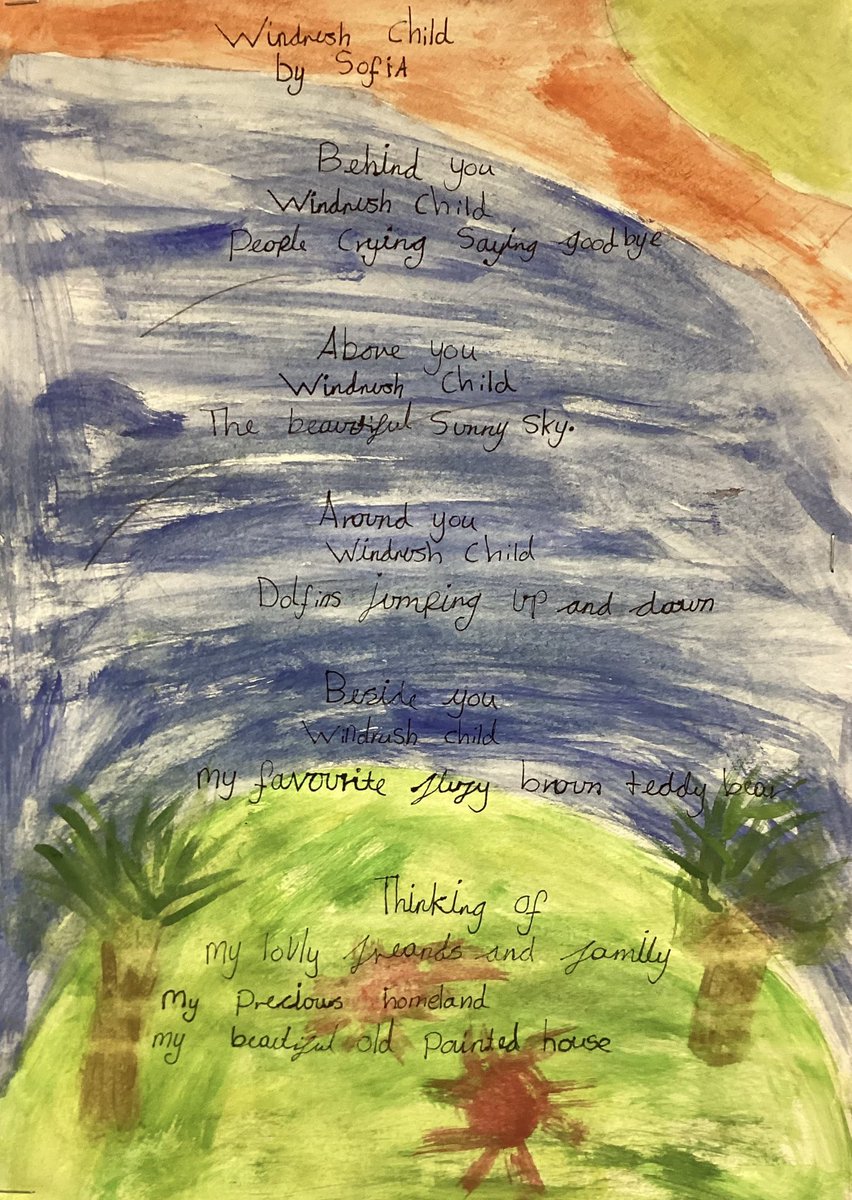 Windrush Child
by SofiA
Behind you
Windrush Child
People Crying Saying goodbye
Above you
Windrush Child
The beautiful Sunny Sky.
Around you
Windrush Child
Dolfins jumping up and down
Beside you
Windrush child
my favourite fluzy brown teddy bear
Thinking of
my lovly freands and family
My precious homeland
my beautiful old painted house